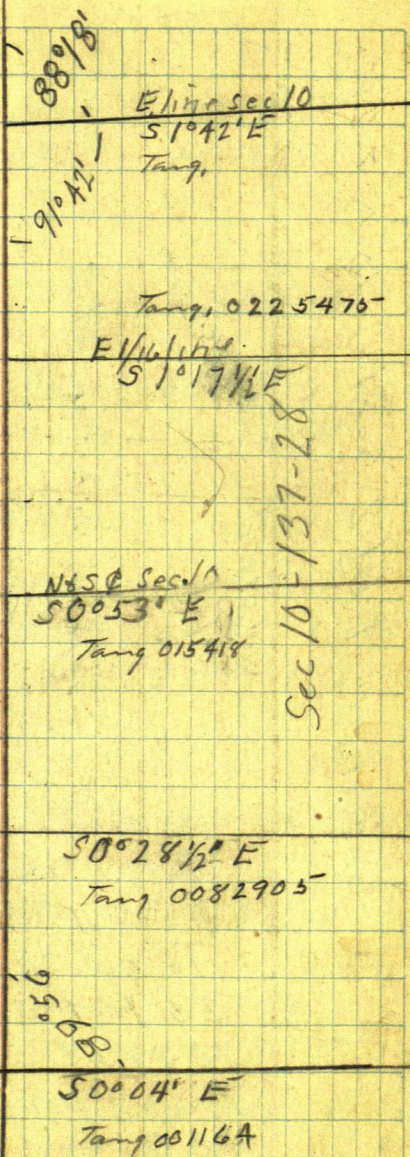 88°18'
E line sec 10
S 1°42' E
Tang.
91°42'
Tang. 0225475
E 1/16 line
S 1°17 1/2' E
Sec 10-137-28
N & S ℄ Sec. 10
S 0°53' E
Tang 015418
S 0°28 1/2' E
Tang 0082905
89° 56'
S 0°04' E
Tang 00116A